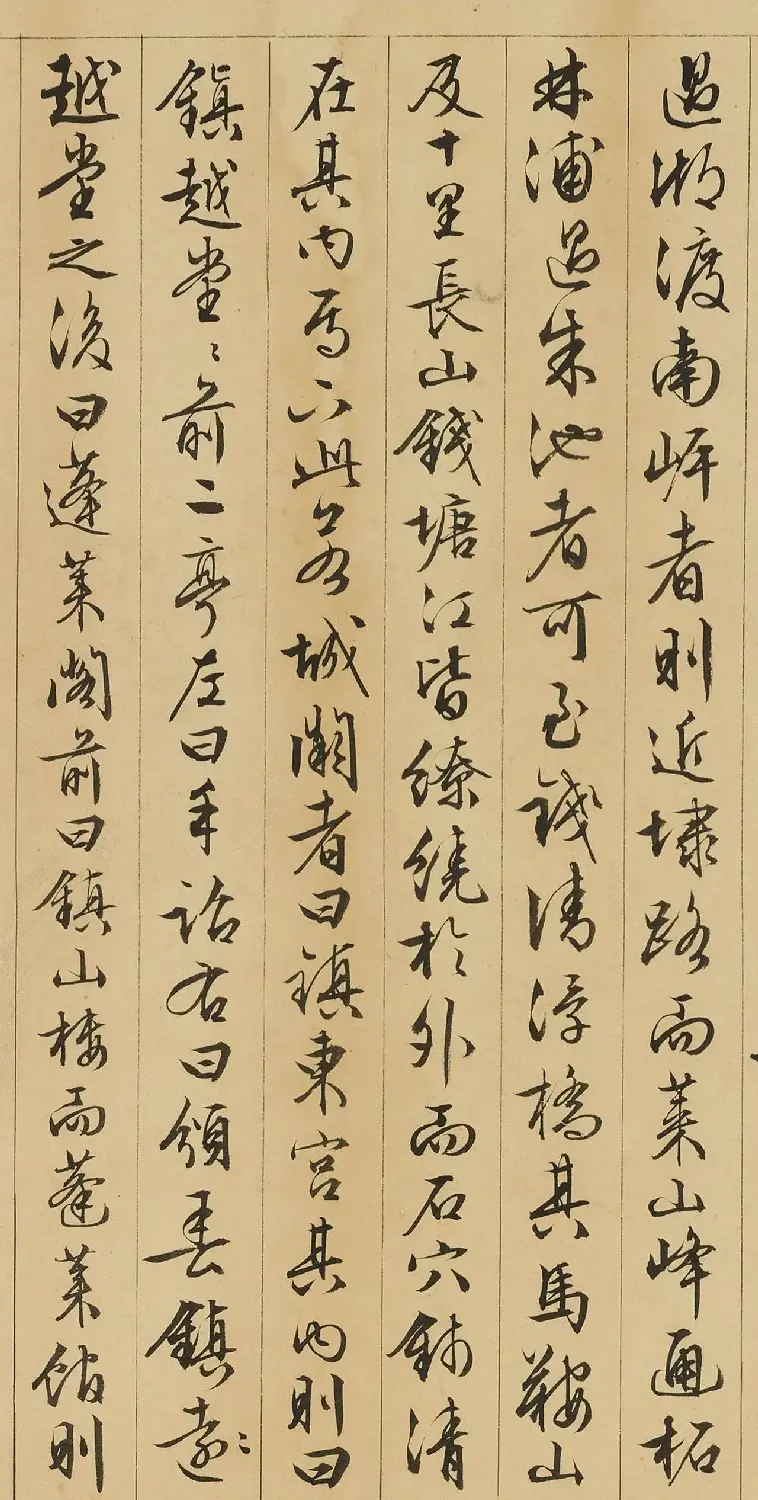 過湖渡南岸者則近埭路而菜山峰通柘
林浦過朱池者可至錢清浮橋其馬鞍山
及十里長山錢塘江皆繚繞於外而石穴錢清
在其內焉下此若城闉者曰鎮東宮其內則曰
鎮越堂〻前二亭左曰手詔右曰頒春鎮遠〻
越堂之後曰蓬萊閣前曰鎮山樓而蓬萊館則